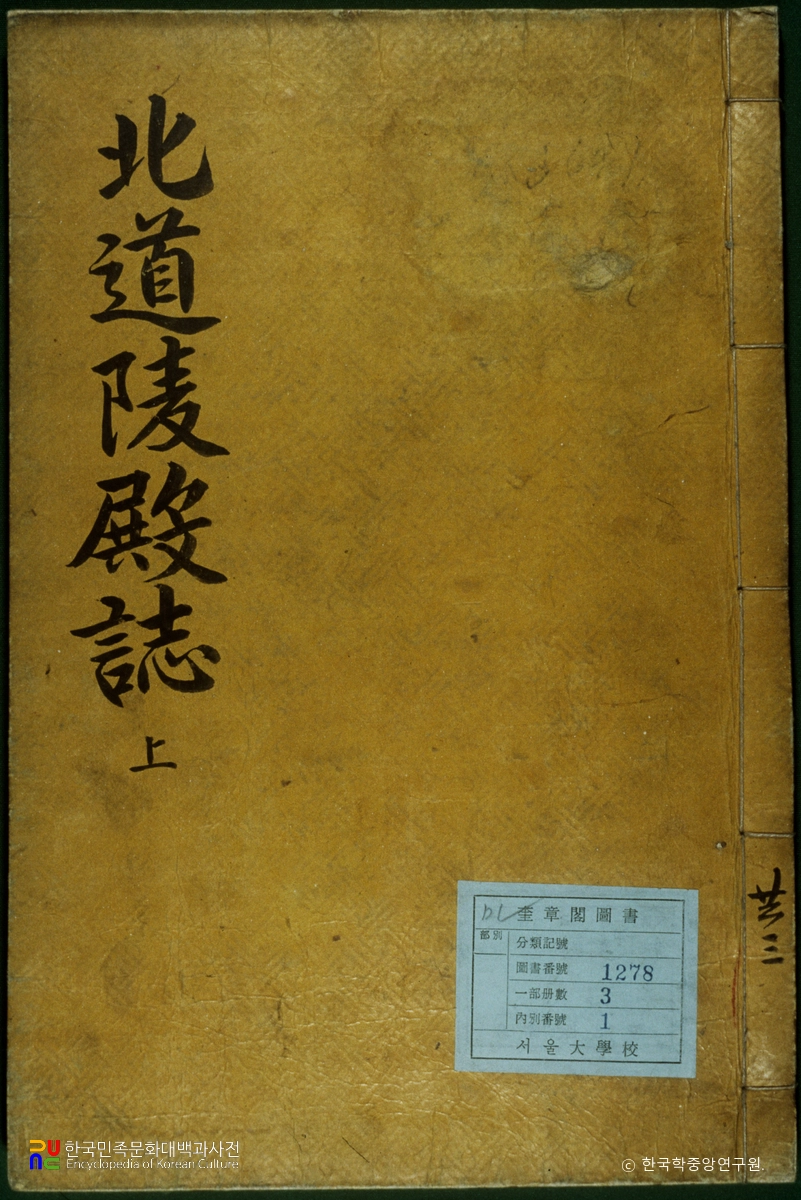 北道陵殿誌
上
共三
奎章閣圖書
部別
分類記號
圖書番號 1278
一部册數 3
內別番號 1
서울大學校
한국민족문화대백과사전
Encyclopedia of Korean Culture
© 한국학중앙연구원.